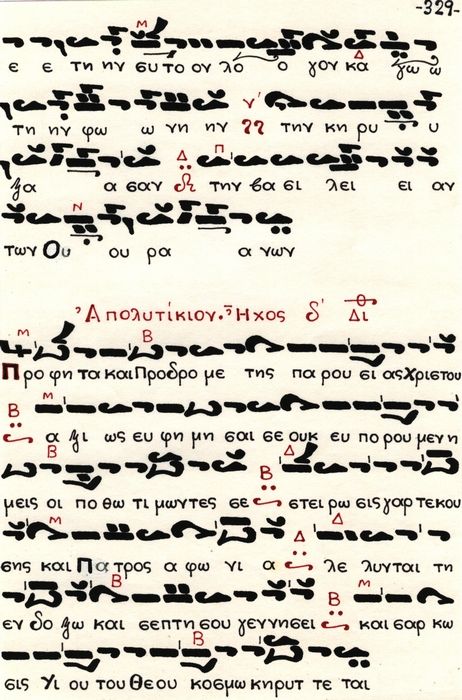 -329-
ε ε τη ην ευ το ον λο ο γον κα γω ω
τη ην φω ω νη ην την κη ρυ υ
ξα α σαν την βα σι λει ει αν
των Ου ου ρα α νων
Ἀπολυτίκιον. Ἦχος δ΄ Δι
Προ φη τα και Προδρο με της πα ρου σι ας Χριστου
α ξι ως ευ φη μη σαι σε ουκ ευ πο ρου μεν η
μεις οι πο θω τι μωντες σε στει ρω σις γαρ τεκου
σης και Πα τρος α φω νι α λε λυνται τη
εν δο ξω και σεπτη σου γεννησει και σαρ κω
σις Υι ου του Θεου κοσμω κηρυτ τε ται